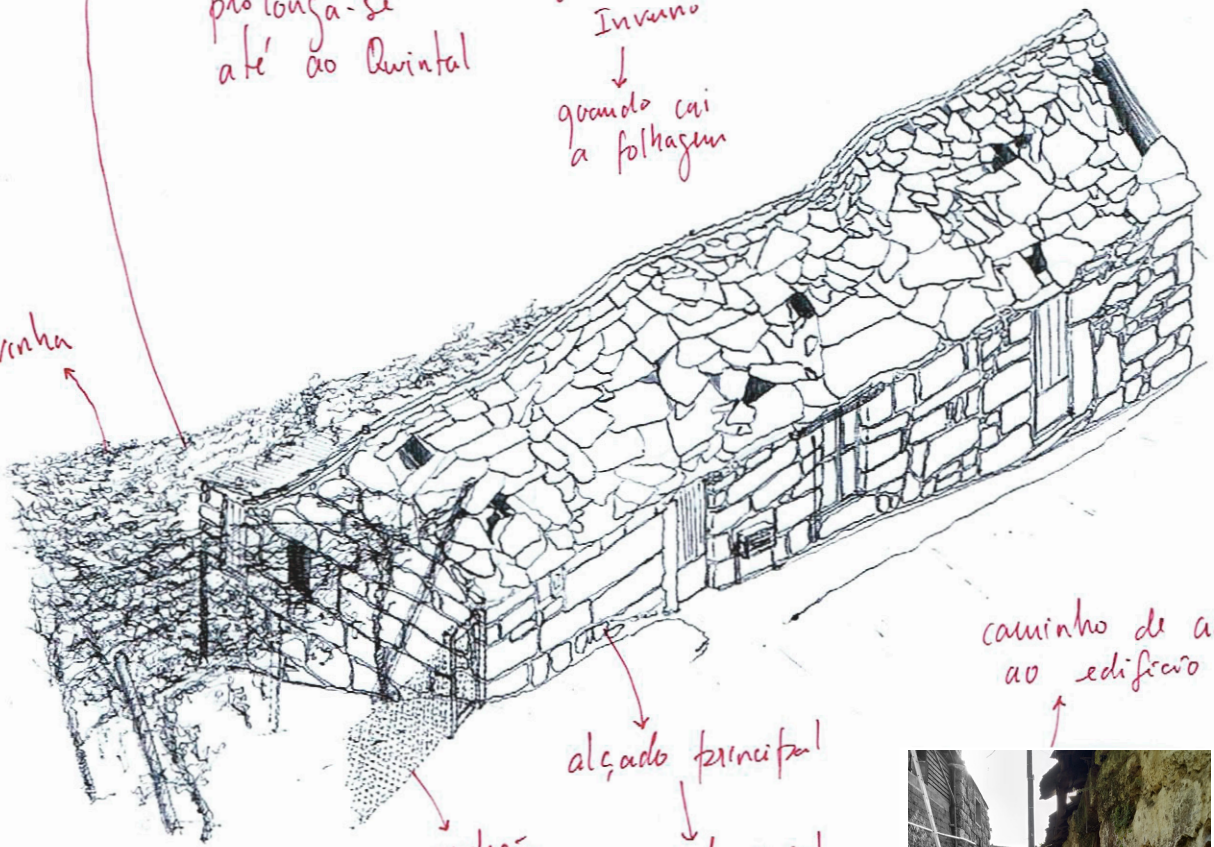 prolonga-se
até ao Quintal
Inverno
quando cai
a folhagem
caminho de a
ao edifício
alçado principal